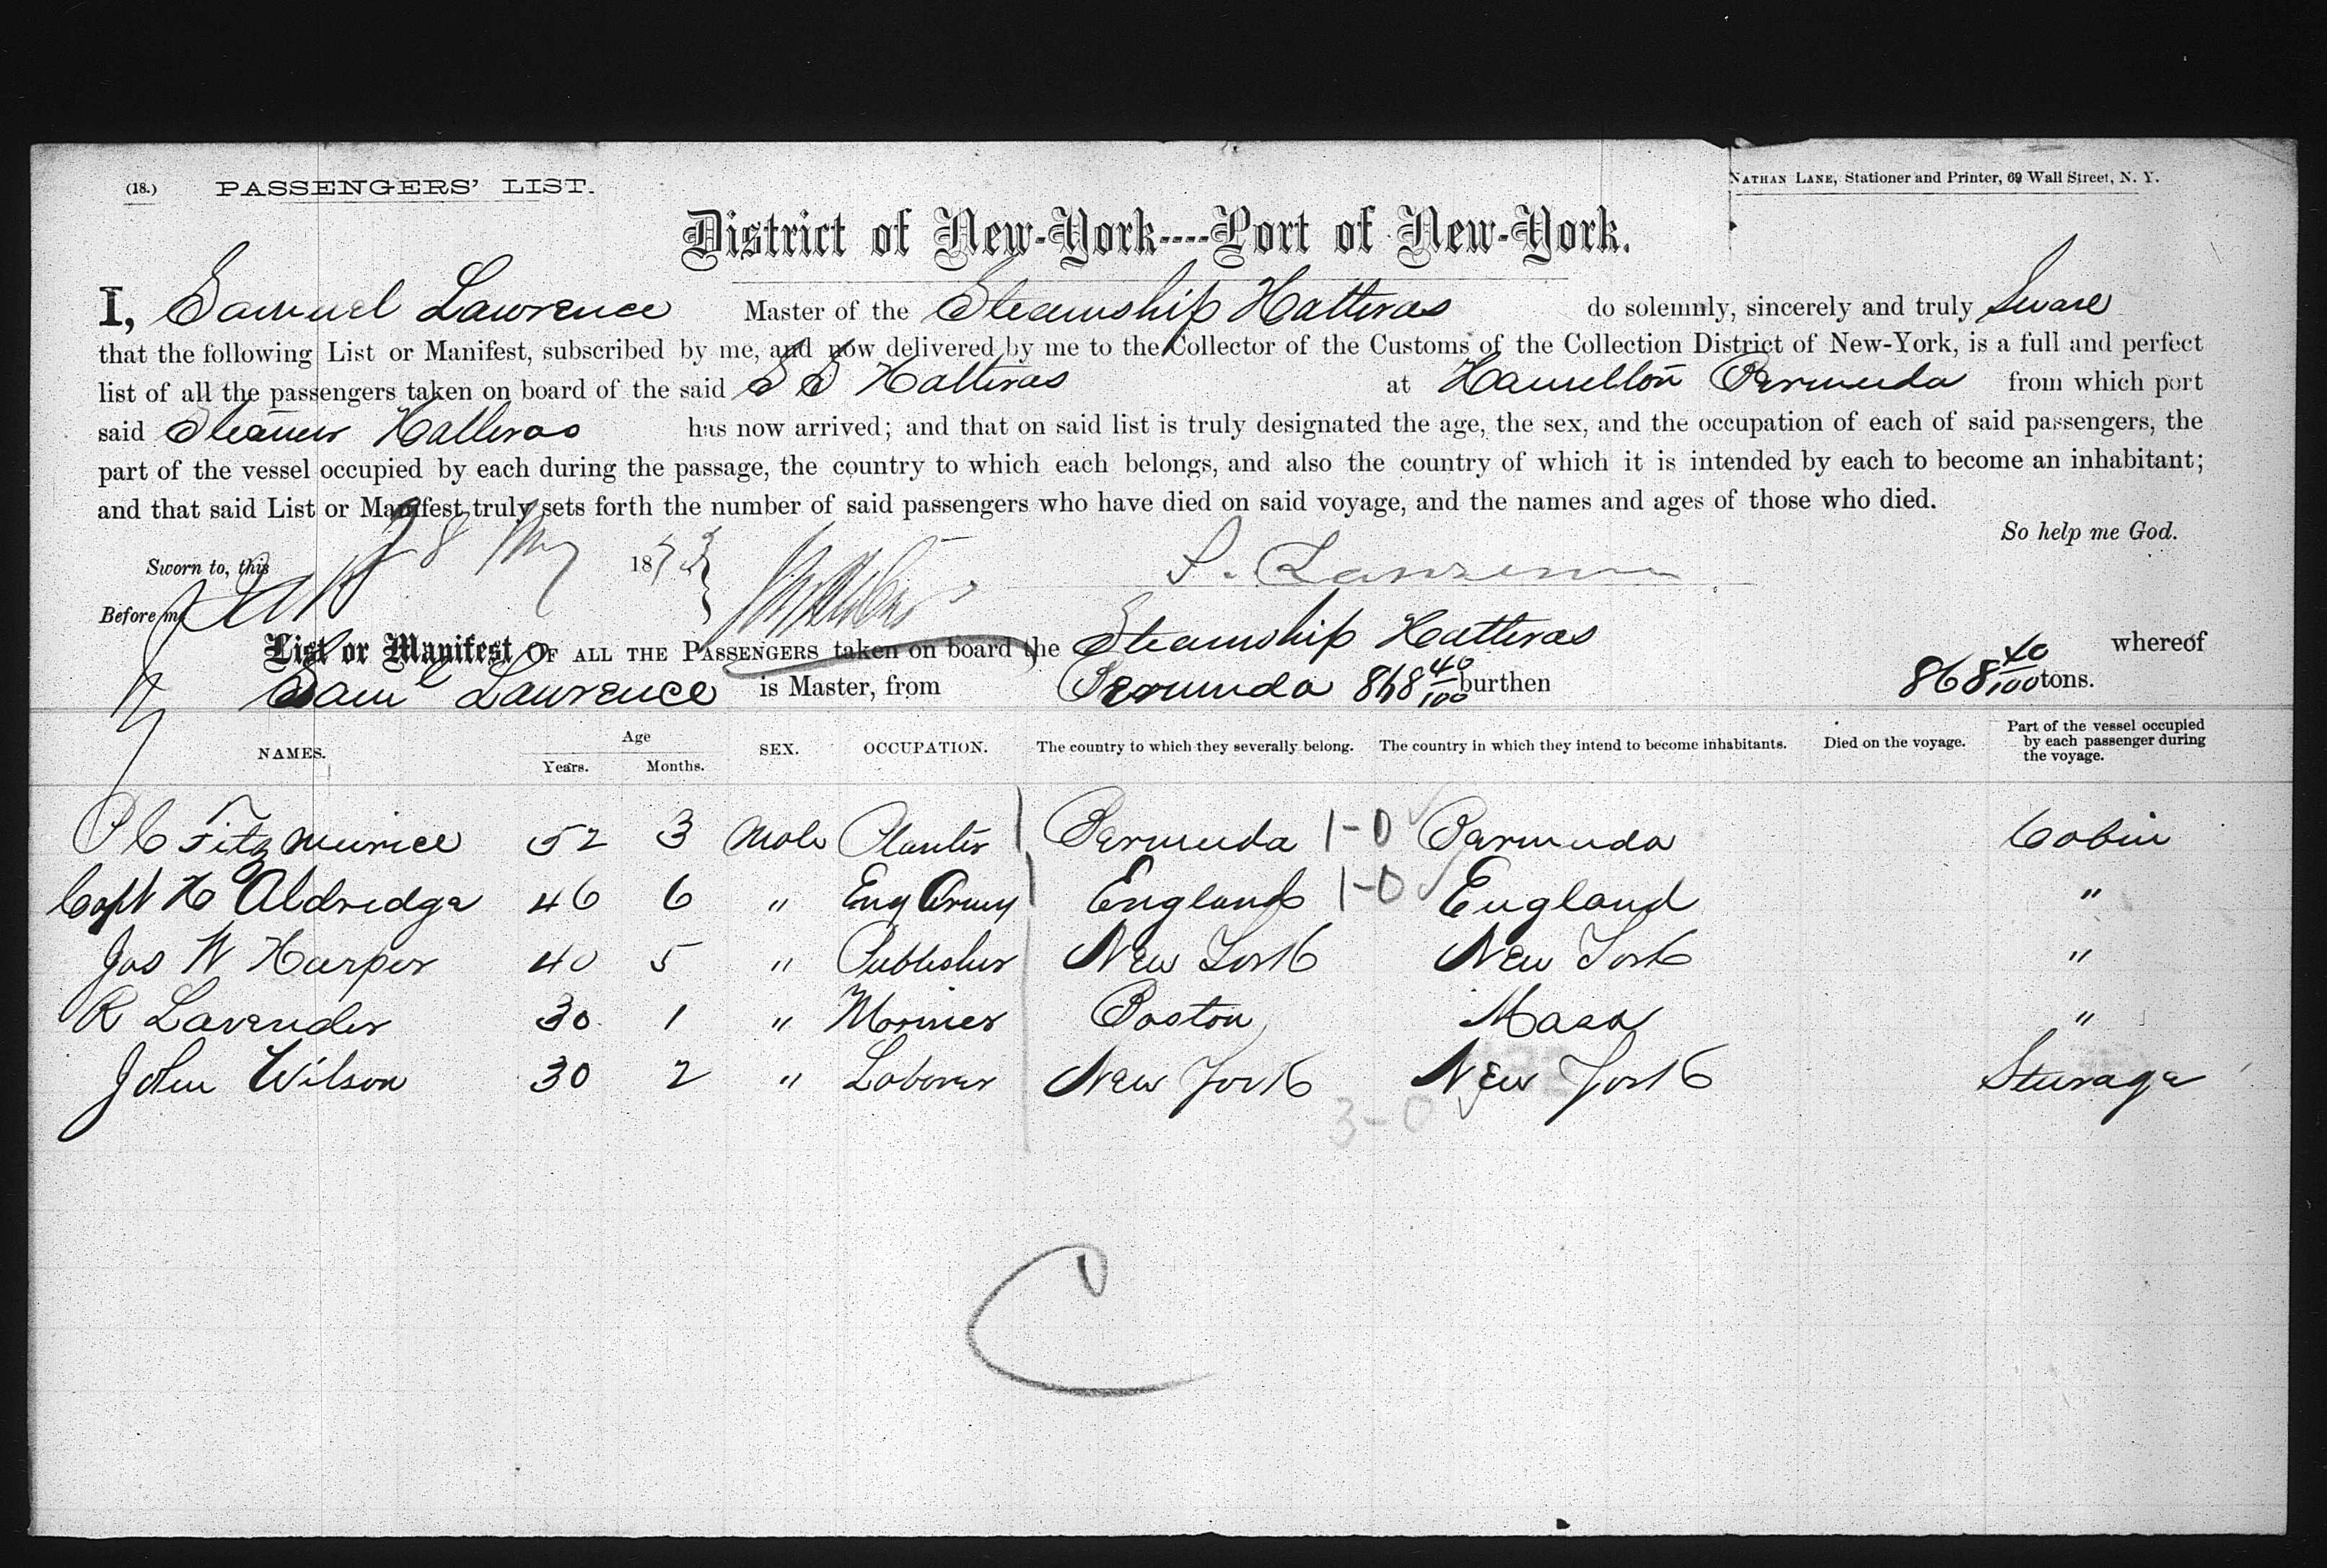 (18.) PASSENGERS' LIST.
NATHAN LANE, Stationer and Printer, 69 Wall Street, N. Y.
District of New-York----Port of New-York.
I, Samuel Lawrence Master of the Steamship Hatteras do solemnly, sincerely and truly Sware
that the following List or Manifest, subscribed by me, and now delivered by me to the Collector of the Customs of the Collection District of New-York, is a full and perfect
list of all the passengers taken on board of the said S S Hatteras at Hamilton Bermuda from which port
said Steamer Hatteras has now arrived; and that on said list is truly designated the age, the sex, and the occupation of each of said passengers, the
part of the vessel occupied by each during the passage, the country to which each belongs, and also the country of which it is intended by each to become an inhabitant;
and that said List or Manifest truly sets forth the number of said passengers who have died on said voyage, and the names and ages of those who died.
So help me God.
Sworn to, this 28 May 1873 S. Lawrence
Before me
List or Manifest OF ALL THE PASSENGERS taken on board the Steamship Hatteras whereof
Saml Lawrence is Master, from Bermuda 868 40/100 burthen 868 40/100 tons.
NAMES. Age Years. Months. SEX. OCCUPATION. The country to which they severally belong. The country in which they intend to become inhabitants. Died on the voyage. Part of the vessel occupied by each passenger during the voyage.
P C Fitz Murice 52 3 Male Planter Bermuda 1-0 Bermuda Cabin
Capt H Aldredge 46 6 " Eng Army England 1-0 England "
Jos W Harper 40 5 " Publisher New York New York "
R Lavender 30 1 " Mariner Boston Mass "
John Wilson 30 2 " Laborer New York New York Sturage
3-0
C